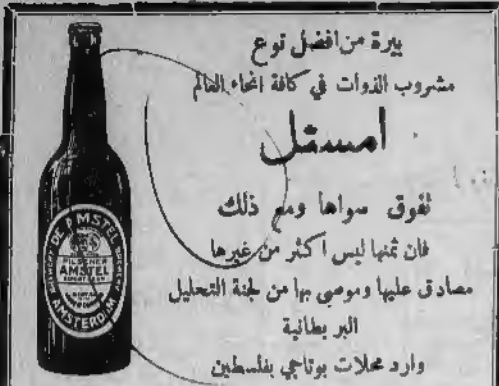 بيرة من افضل نوع
مشروب الذوات في كافة انحاء العالم
امستل
تفوق سواها ومع ذلك
فان ثمنها ليس اكثر من غيرها
مصادق عليها وموصى بها من لجنة التحليل
البريطانية
وارد محلات بوتاجي بفلسطين
DE AMSTEL
BREWERY
PILSENER
AMSTEL
AMSTERDAM